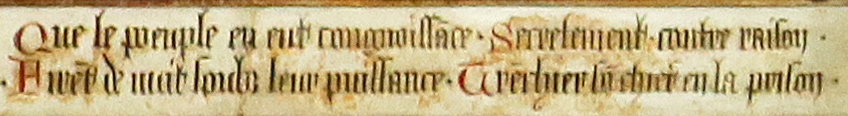 Que le peuple en eut congnoissãce · Secretement · contre raison ·
· Furẽt de nuit soubz leur puissance · en la prison ·